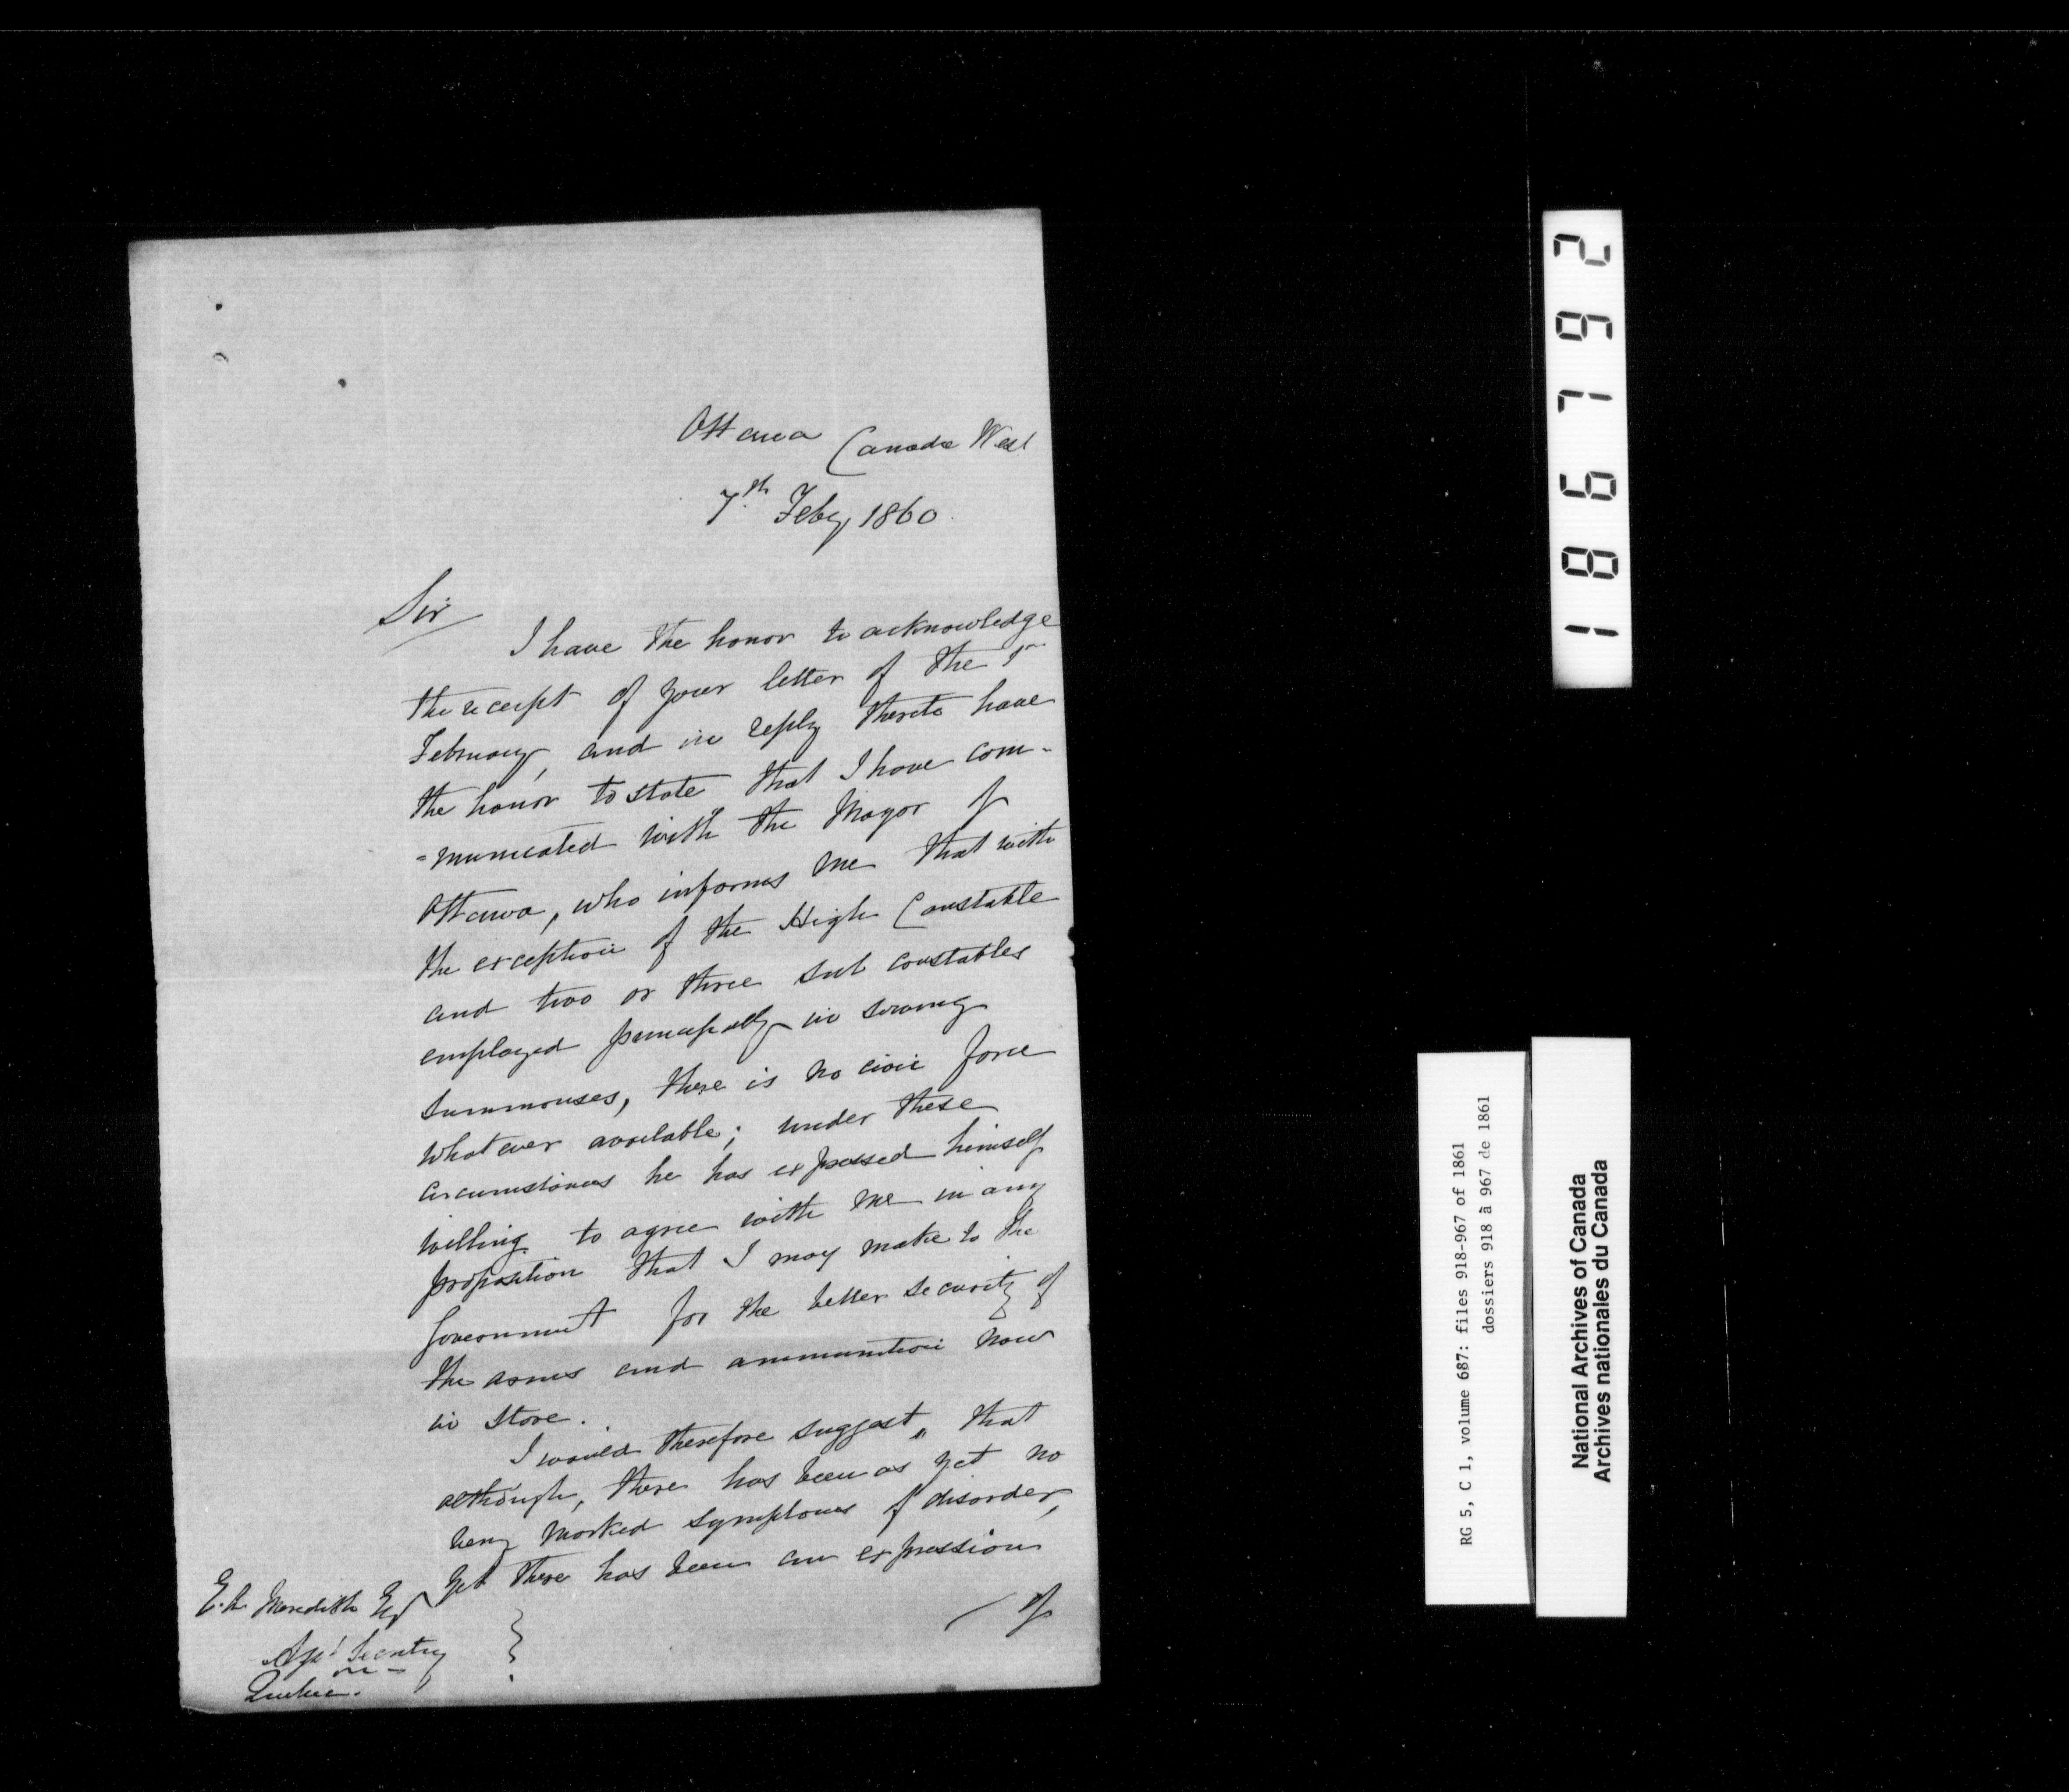 Ottawa Canada West
7th Feby, 1860.
Sir
I have the honor to acknowledge
the receipt of your letter of the
February, and in reply thereto have
the honor to state that I have com-
=municated with the Mayor of
Ottawa, who informs me that with
the exception of the High Constable
and two or three sub constables
employed principally in serving
summonses, there is no civic force
whatever available; under these
circumstances he has expressed himself
willing to agree with me in any
proposition that I may make to the
Government for the better security of
the arms and ammunition now
in store.
I would therefore suggest, that
although, there has been as yet no
very marked symptoms of disorder,
yet there has been an expression
of
E.A. Meredith Esq
Asst Secretry
Quebec.
186792
RG 5, C 1, volume 687: files 918-967 of 1861
dossiers 918 à 967 de 1861
National Archives of Canada
Archives nationales du Canada